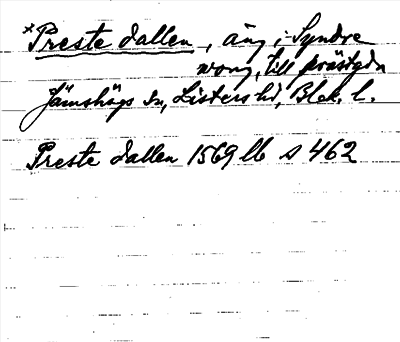 *Preste dallen, äng i Syndre
wong, till prästgdn
Jämshögs sn, Listers hd, Blek. l.
Preste dallen 1569 lb s 462